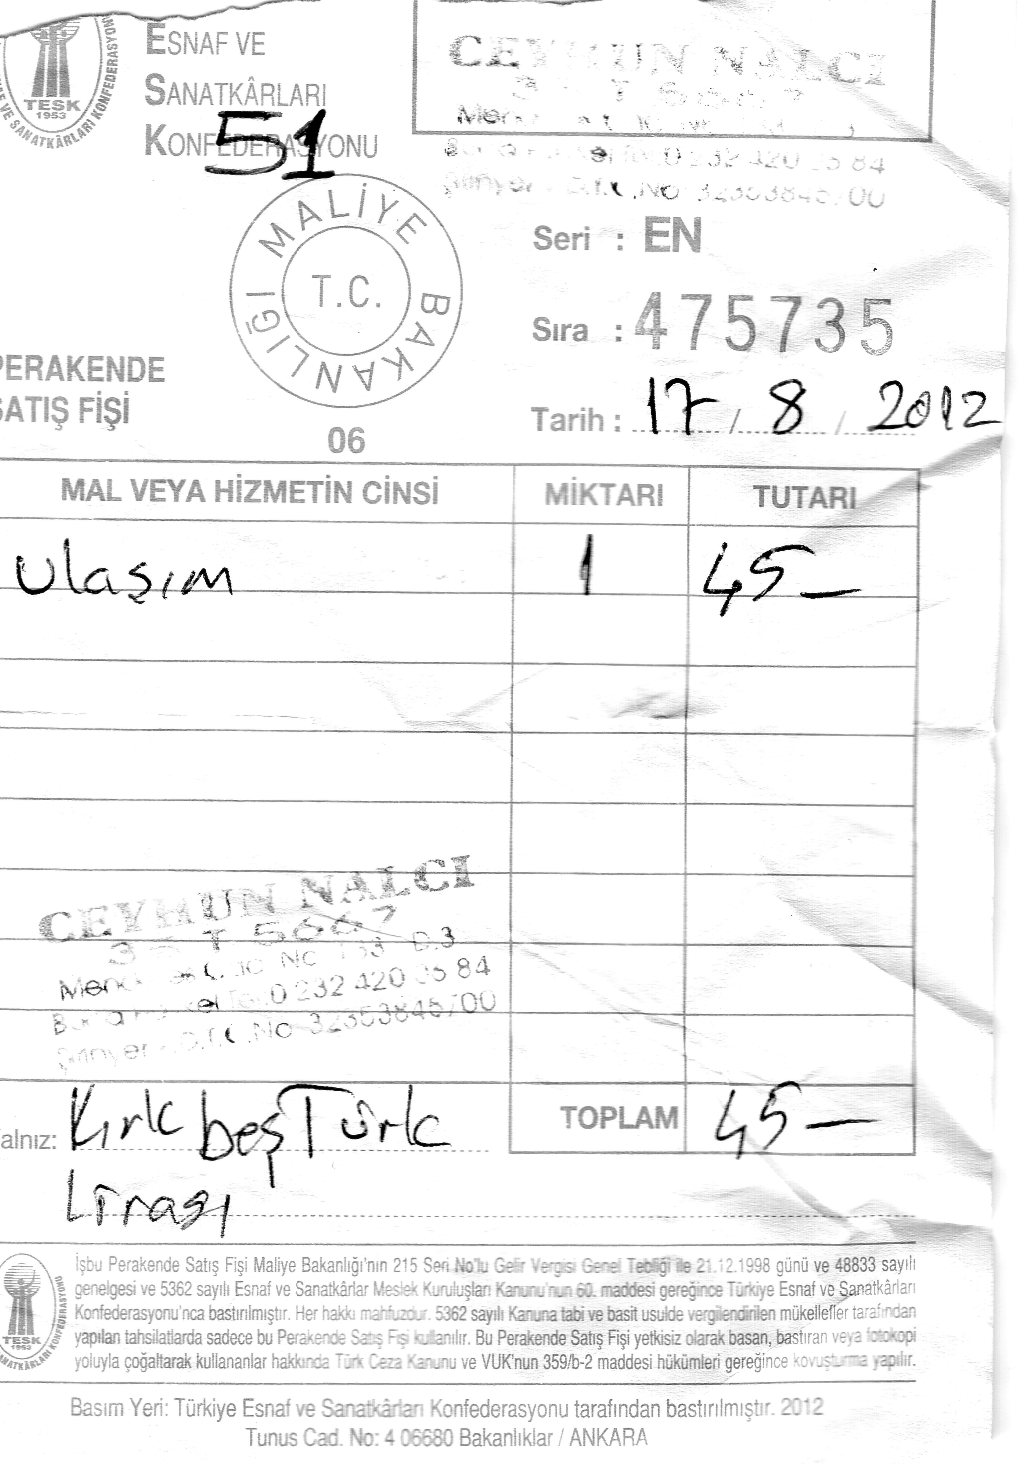 ESNAF VE
SANATKÂRLARI
KONFEDERASYONU
51
TESK
1953
CEYHUN NALCI
EN
Seri : EN
MALİYE BAKANLIĞI
T.C.
Sıra : 475735
PERAKENDE
SATIŞ FİŞİ
06
Tarih : 17 / 8 / 2012
MAL VEYA HİZMETİN CİNSİ MİKTARI TUTARI
ulaşım 1 45-
CEYHUN NALCI
0 232 420
TOPLAM 45-
Yalnız: Kırk beş Türk
Lirası
İşbu Perakende Satış Fişi Maliye Bakanlığı'nın 215 Seri No'lu Gelir Vergisi Genel Tebliği ile 21.12.1998 günü ve 48833 sayılı
genelgesi ve 5362 sayılı Esnaf ve Sanatkârlar Meslek Kuruluşları Kanunu'nun 60. maddesi gereğince Türkiye Esnaf ve Sanatkârları
Konfederasyonu'nca bastırılmıştır. Her hakkı mahfuzdur. 5362 sayılı Kanuna tabi ve basit usulde vergilendirilen mükellefler tarafından
yapılan tahsilatlarda sadece bu Perakende Satış Fişi kullanılır. Bu Perakende Satış Fişi yetkisiz olarak basan, bastıran veya fotokopi
yoluyla çoğaltarak kullananlar hakkında Türk Ceza Kanunu ve VUK'nun 359/b-2 maddesi hükümleri gereğince kovuşturma yapılır.
TESK
Basım Yeri: Türkiye Esnaf ve Sanatkârları Konfederasyonu tarafından bastırılmıştır. 2012
Tunus Cad. No: 4 06680 Bakanlıklar / ANKARA